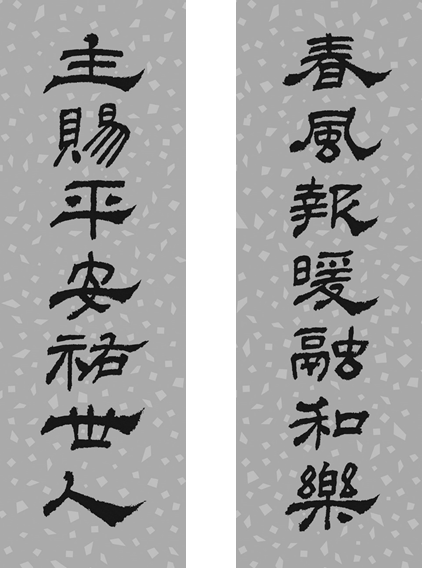 春風報暖融和樂
主賜平安祐世人